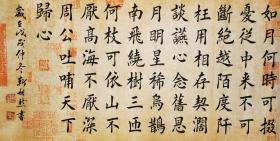 如月何時可掇
憂從中來不可
斷絕越陌度阡
枉用相存契闊
談讌心念舊恩
月明星稀烏鵲
南飛繞樹三匝
何枝可依山不
厭高海不厭深
周公吐哺天下
歸心
戊戌仲冬 書